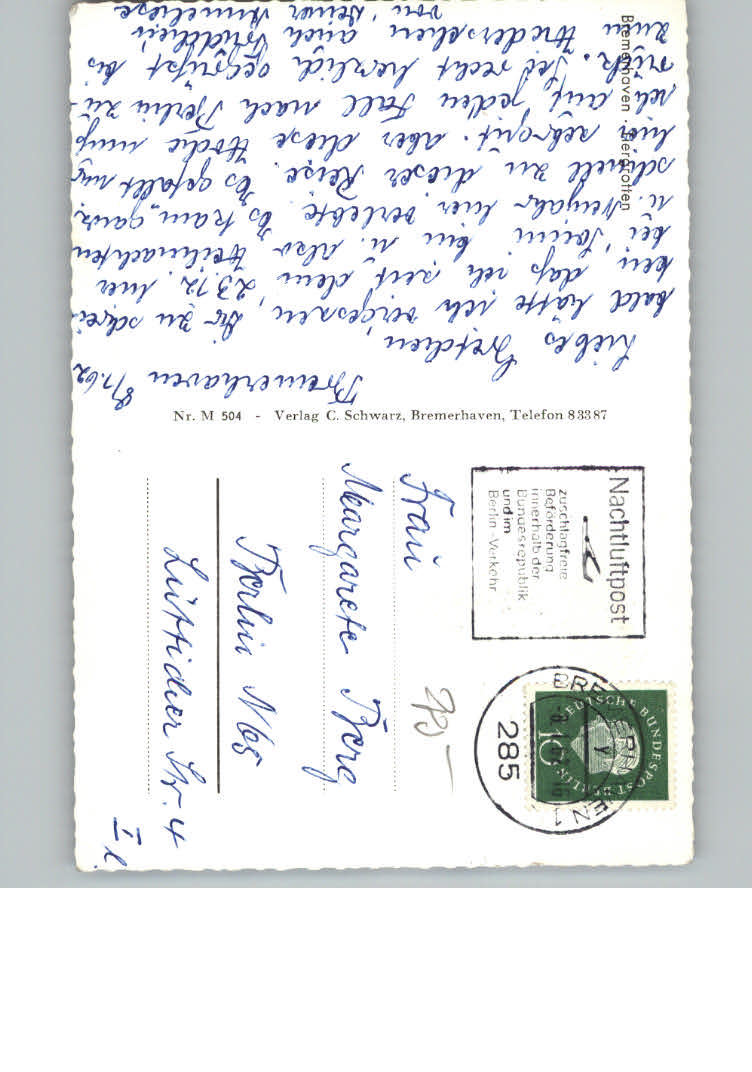 Bremerhaven 8/1.62
Liebes Gretchen,
bald hätte ich vergessen, Dir zu schrei-
ben daß ich seit dem 23.12. hier
bei bin u. also Weihnachten
u. Neujahr hier verlebte. Es kam ganz
schnell zu dieser Reise. Es gefällt mir
hier sehr gut. aber diese Woche muß
ich auf jeden Fall nach Berlin zu-
rück. Sei recht herzlich gegrüßt bis
zum Wiedersehen auch
von Deiner Anneliese
Bremerhaven · Tiergrotten
Nr. M 504 - Verlag C. Schwarz, Bremerhaven, Telefon 83387
Nachtluftpost
zuschlagfreie
Beförderung
innerhalb der
Bundesrepublik
und im
Berlin-Verkehr
285
DEUTSCHE BUNDESPOST BERLIN
10
Frau
Margarete Berg
Berlin N65
Lütticher Str. 4
I